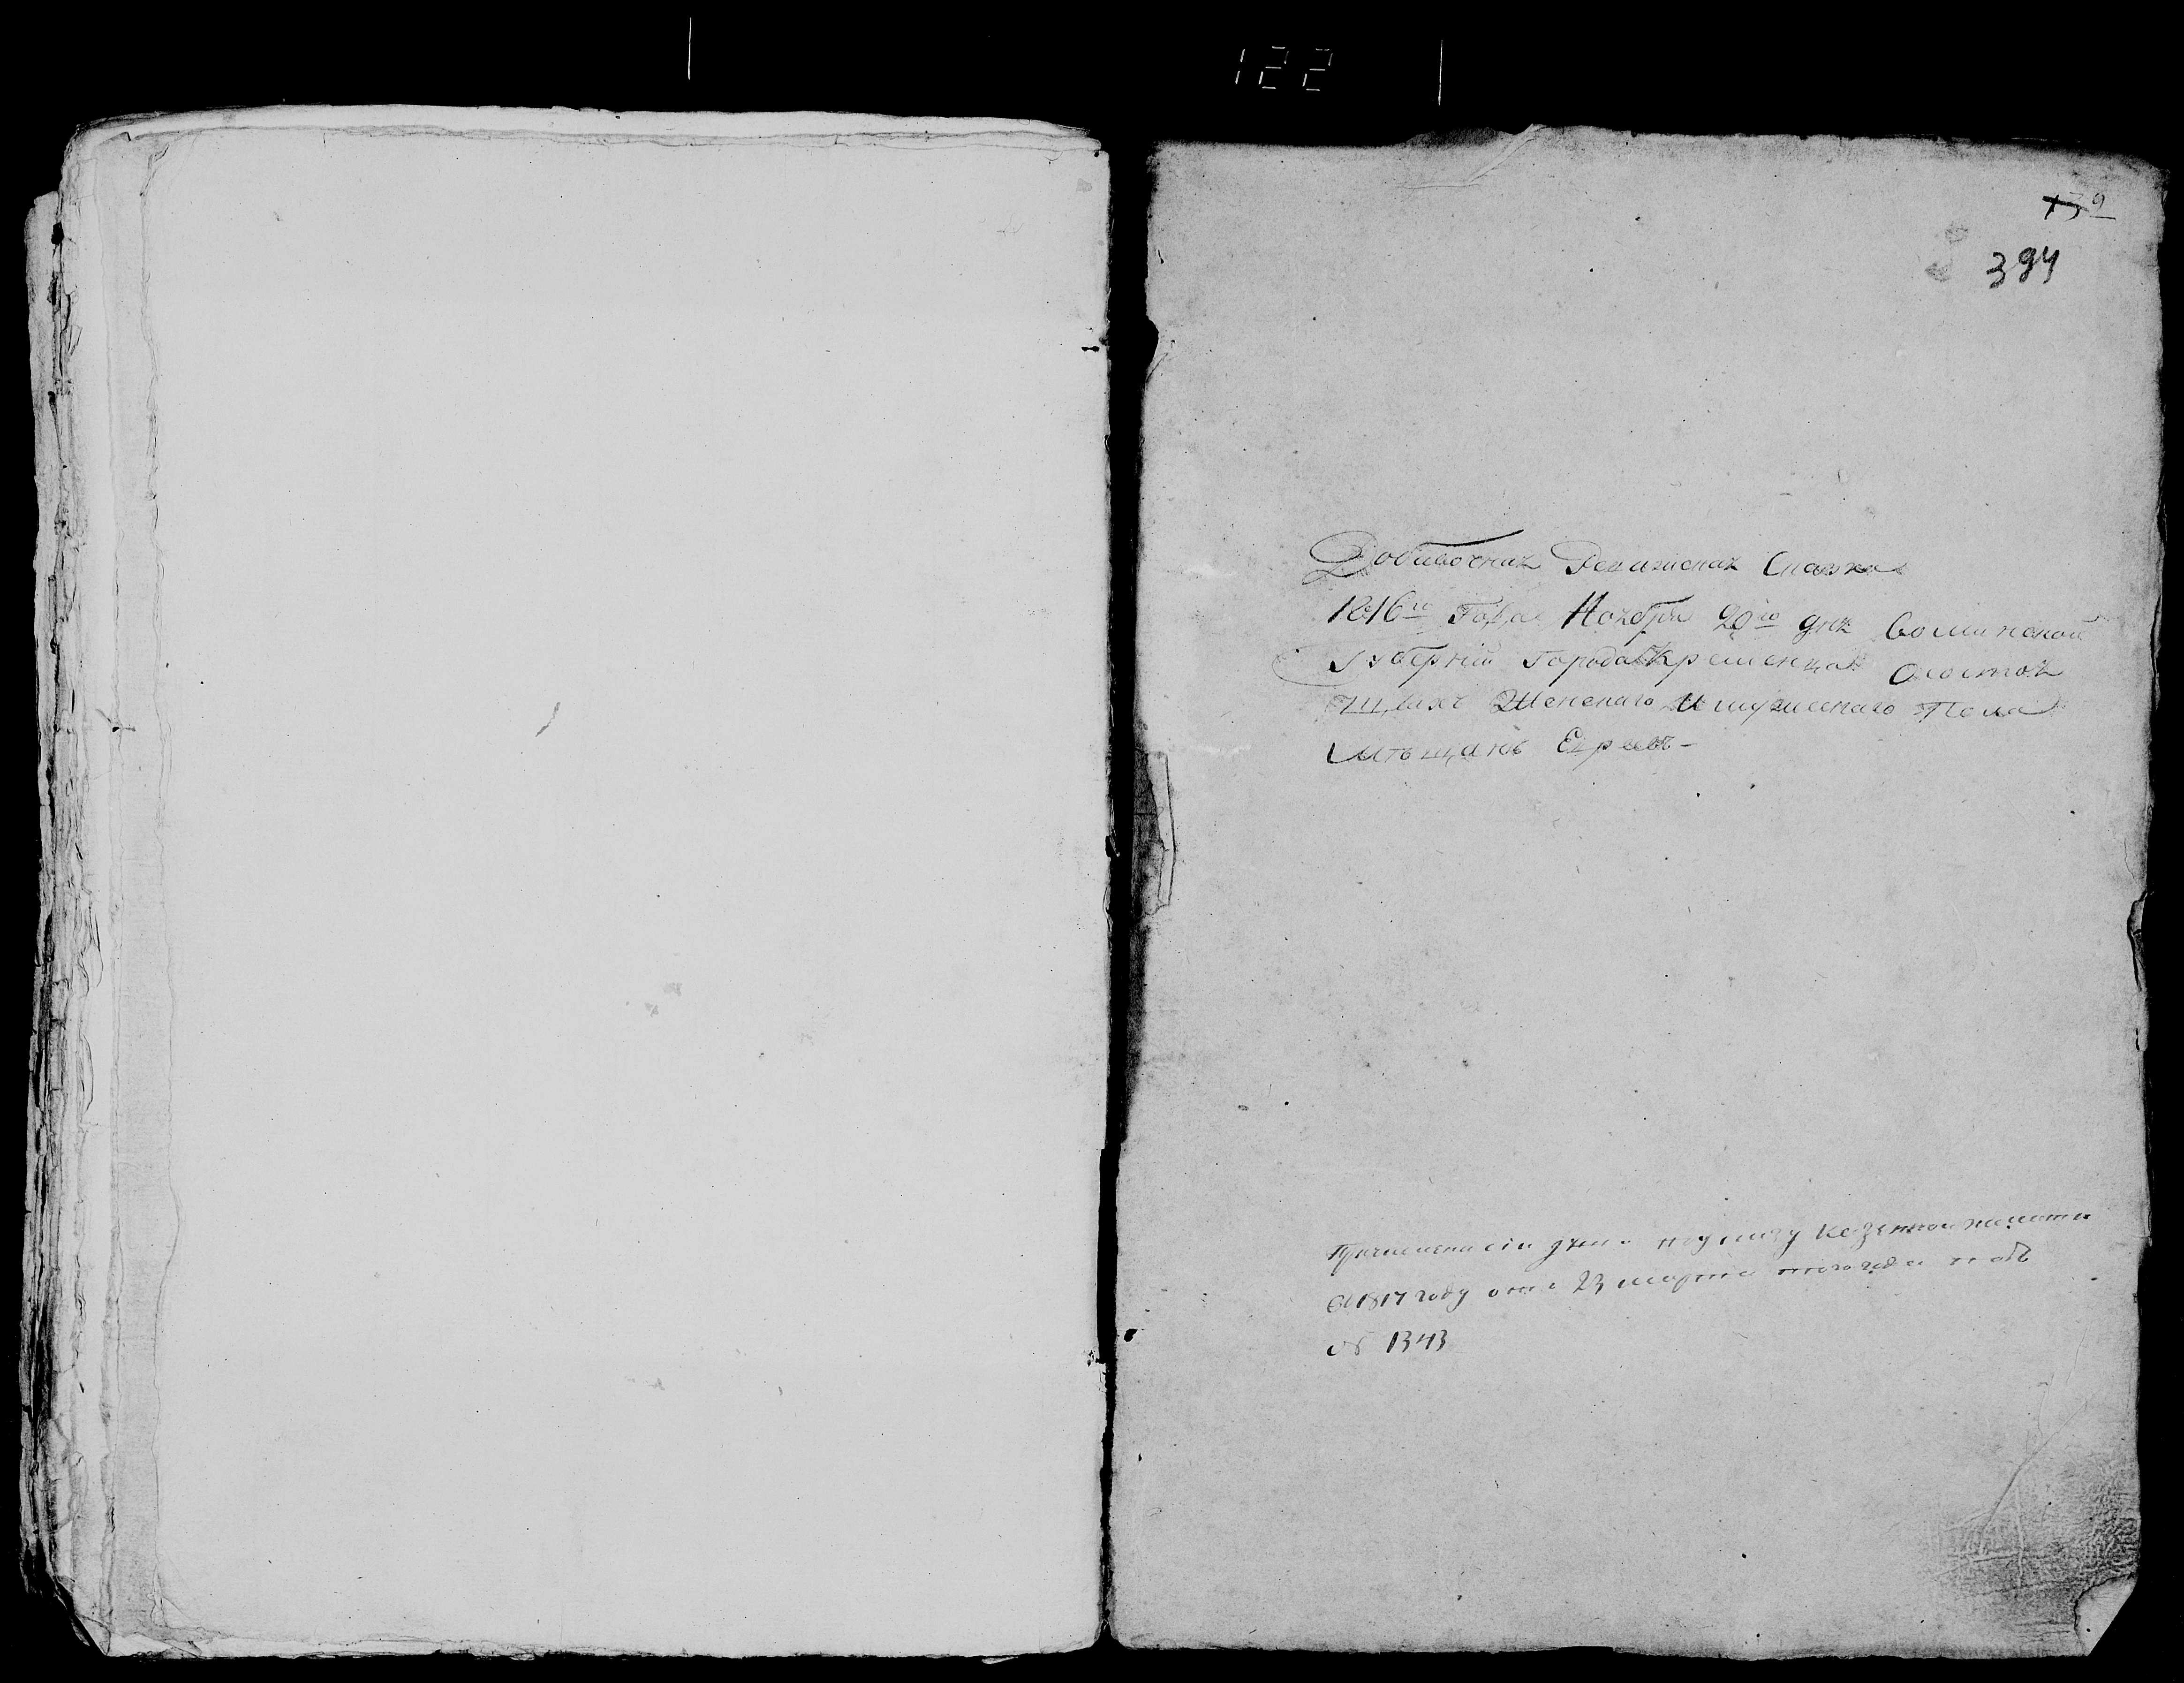 122
139
394
Добавочная Ревижская Сказка
1816го Года Ноября 20го дня Волинской
Губерній Города Кременца Осостоя
щихъ Женскаго и мужескаго Пола
мѣщанъ Евреевъ
Причислены сіи души поуказу Казенной палаты
въ 1817 году отъ 23 марта того года
№ 1343